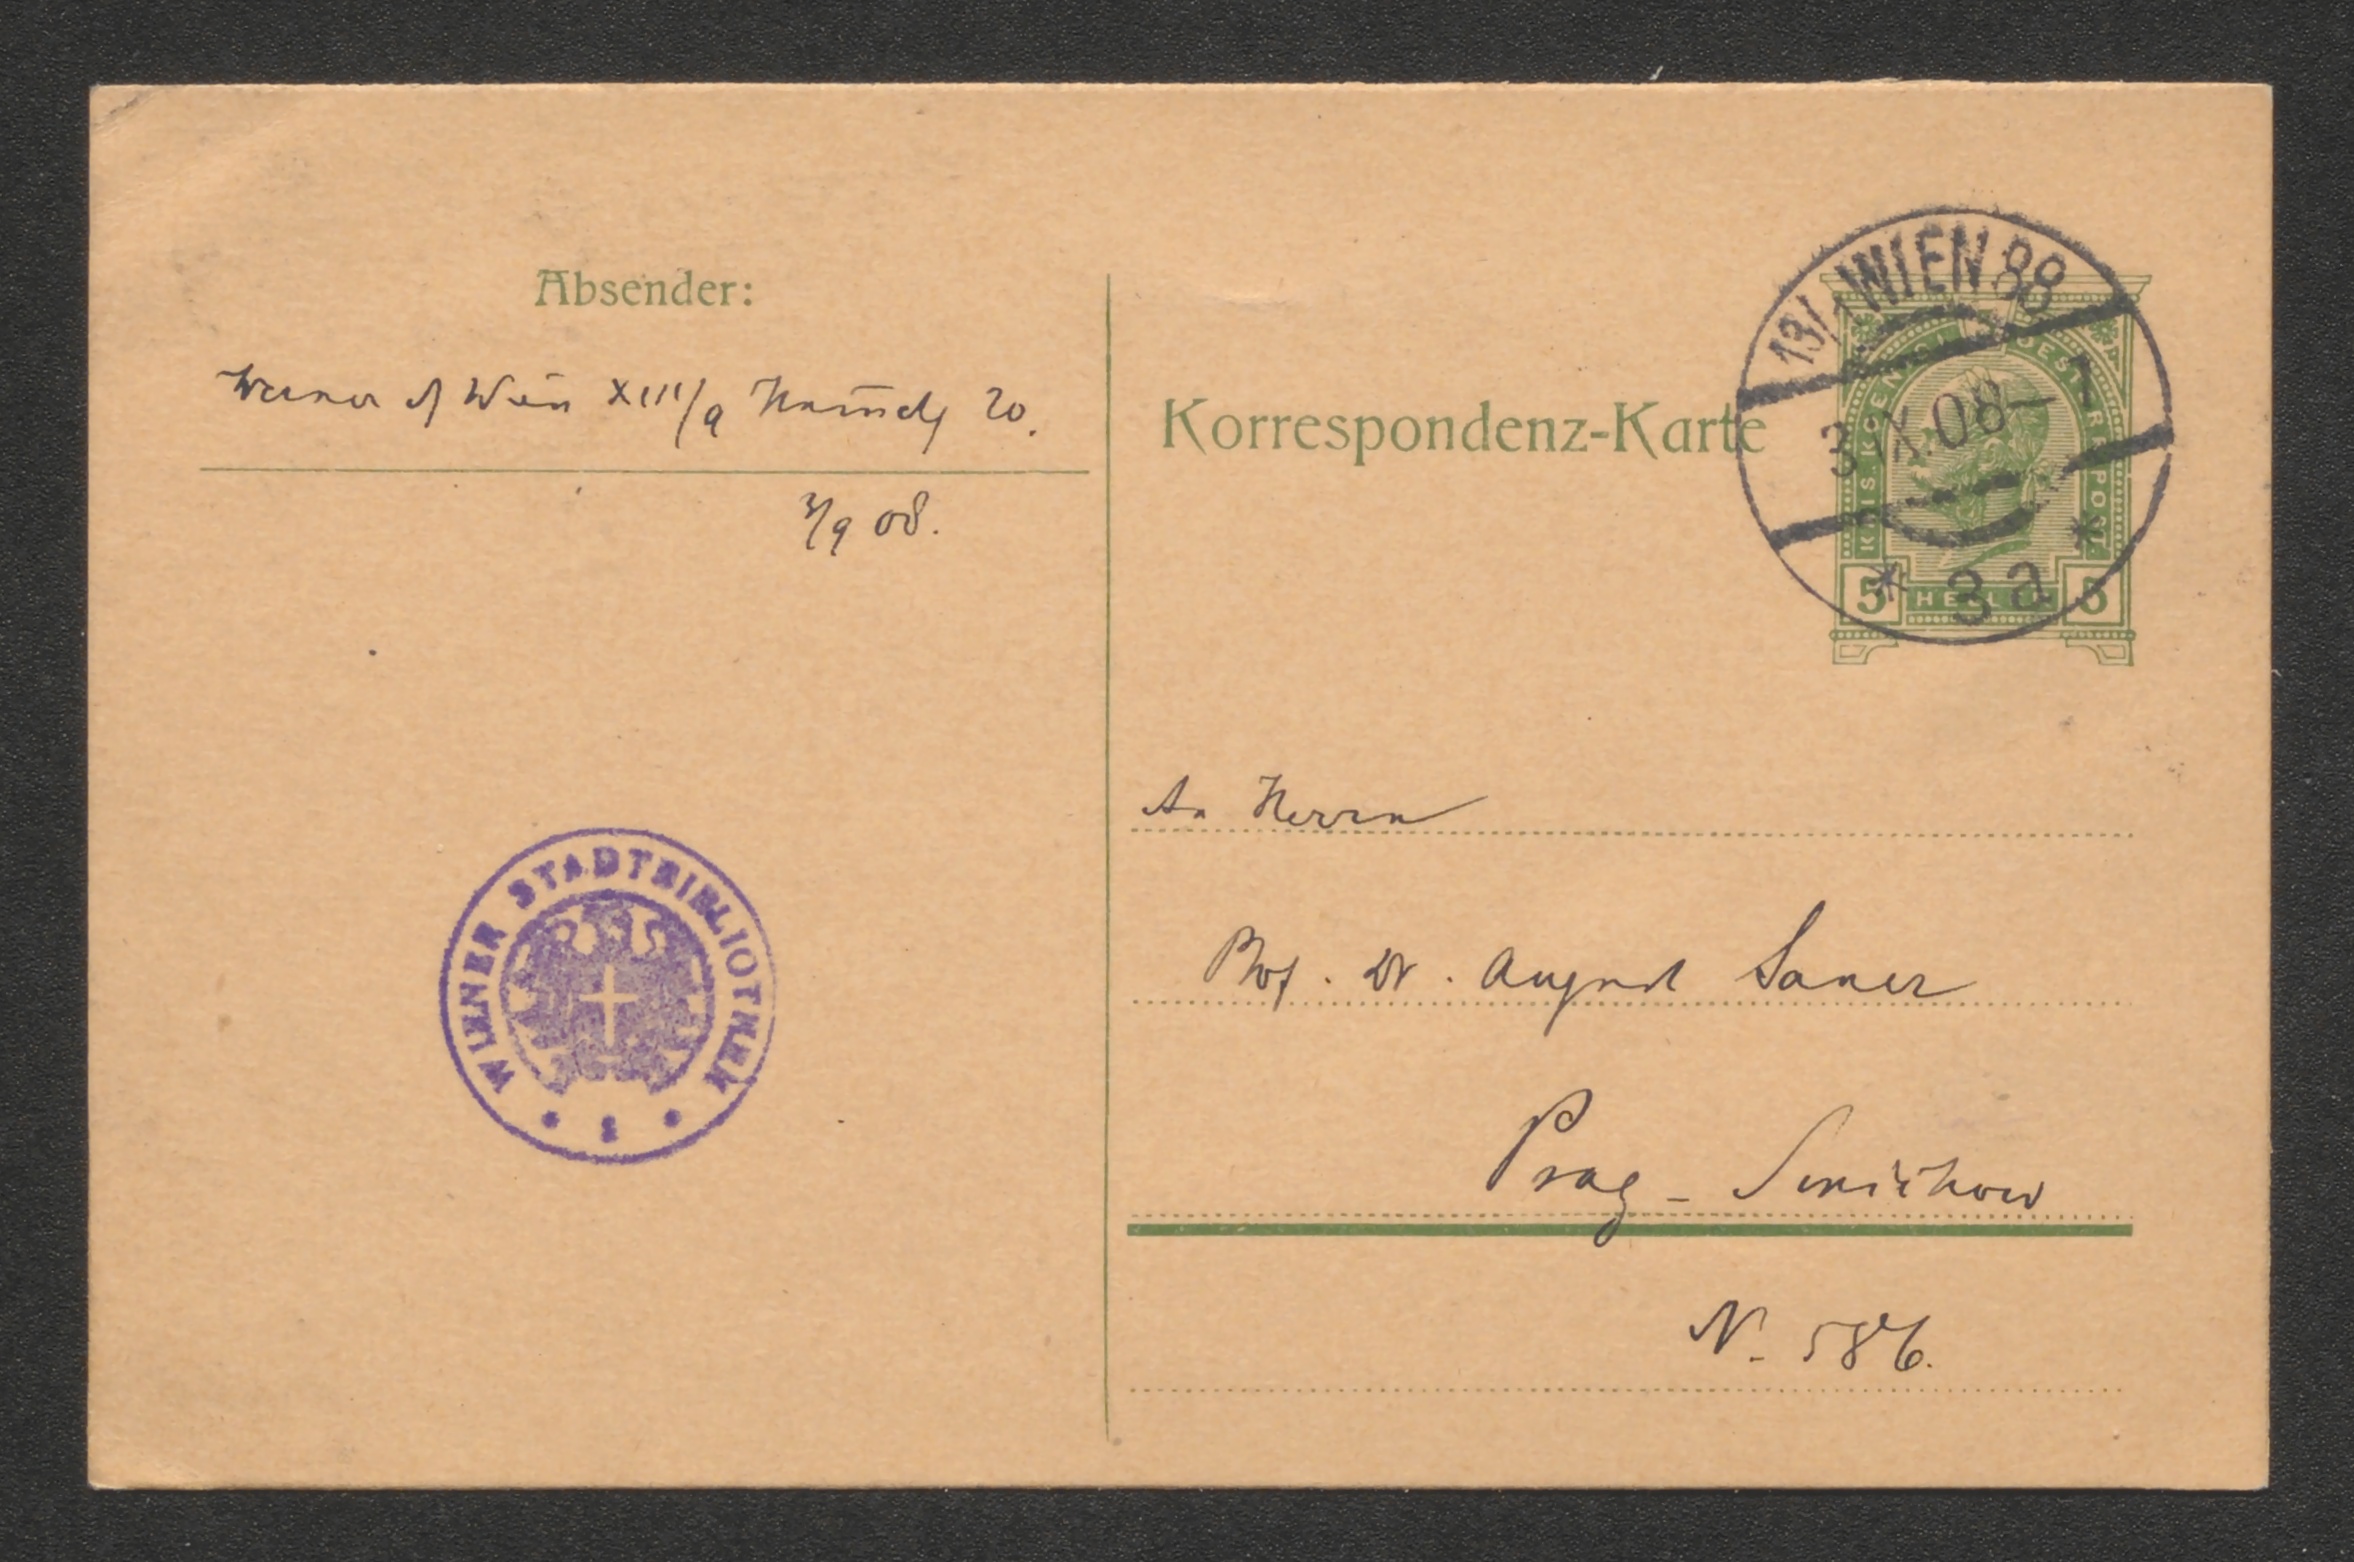 Absender:
Werner Wien XIII/9 20.
3/9 08.
WIENER STADTBIBLIOTHEK
Korrespondenz-Karte
13/ WIEN 88
3 IX. 08 – 1
* 3a *
5 HELLER 5
An Herrn
Prof. Dr. August Sauer
Prag - Smichow
N. 586.